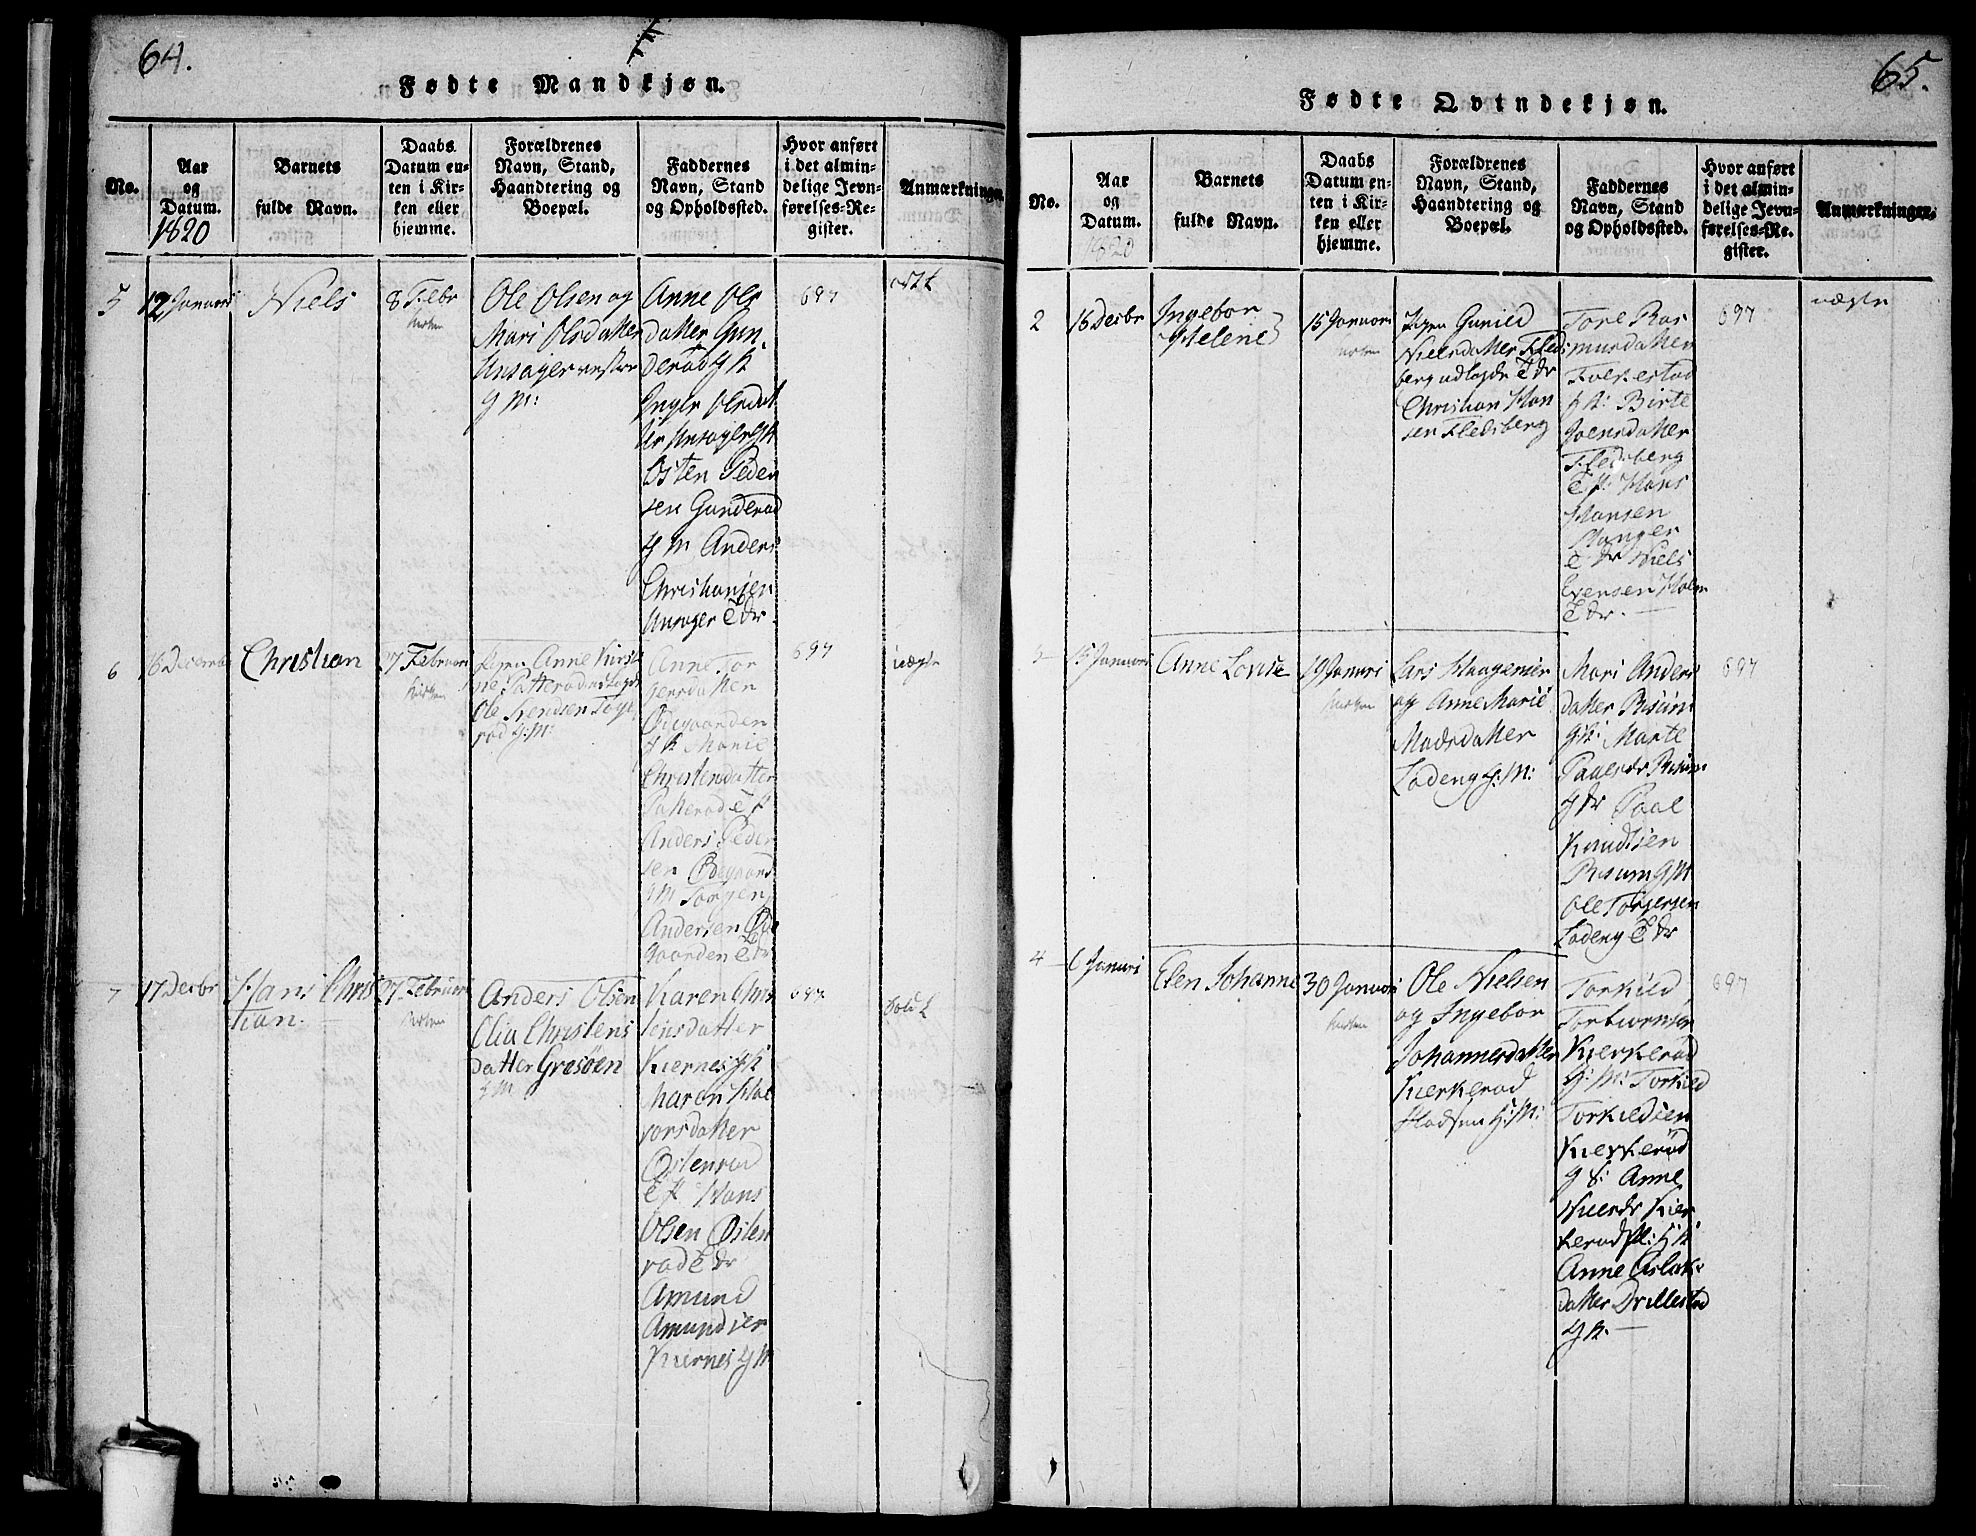 64.
Fødte Mandkjøn.
No.
Aar
og
Datum.
1820
Barnets
fulde Navn.
Daabs
Datum en-
ten i Kir-
ken eller
hjemme.
Forældrenes
Navn, Stand,
Haandtering og
Boepæl.
Faddernes
Navn, Stand
og Opholdssted.
Hvor anført
i det almin-
delige Jevn-
førelses-Re-
gister.
Anmærkninger
5
12 Januari
Niels
8 Febr
Kirken
Ole Olsen og
Mari Olsdatter
Unsager
G M:
Anne Ols
datter Gun
derød G K
Inger Olsdat
ter Unsager G K
Osten Peder
sen Gunderød
G M Anders
Christiansen
Unsager E dr
697
6
16 Decembr
Christian
27 Februari
Kirken
Pigen Anne Kirst
ne
Ole Svendsen
rød G: M:
Anne Tor
gersdatter
Ødegaarden
G K Marie
Christensdatter
Patterød E P
Anders Peder
sen Ødegaard
G M Torger
Andersen Øde
gaarden E dr
697
uægte
7
17 Decbr
Hans Chris
tian.
27 Februari
Kirken
Anders Olsen
Elia Christens
datter Grosöen
G M
Karen Chris
tensdatter
Kiernes G K
Maren Hal
vorsdatter
Østenrød
E P Hans
Olsen Østen
rød E dr
Amund
Amundsen
Kiernes G M
697
65.
Fødte Qvindekjøn.
No.
Aar
og
Datum.
1820
Barnets
fulde Navn.
Daabs
Datum en-
ten i Kir-
ken eller
hjemme.
Forældrenes
Navn, Stand,
Haandtering og
Boepæl.
Faddernes
Navn, Stand
og Opholdssted.
Hvor anført
i det almin-
delige Jevn-
førelses-Re-
gister.
Anmærkninger.
2
16 Decbr
Ingebor
Helene
15 Januari
Kirken
Pigen Gunild
Nielsdatter Fleds
berg udlagde E dr
Christian Han
sen Fledsberg
Tore Ras
musdatter
Folkestad
G K: Birte
Joensdatter
Fledsberg
E P: Hans
Hansen
Hanger
E dr Niels
Evensen Holm
E dr.
697
uægte
3
15 Januari
Anne Lovise
19 Januari
Kirken
Lars Haagensen
og Anne Marie
Madsdatter
Lodeng G: M:
Mari Anders
datter Risum
G K: Marte
Paalsdr Risum
G dr Paal
Knudtsen
Risum G M
Ole Torgersen
Lodeng E dr
697
4
6 Januari
Elen Johanne
30 Januari
Kirken
Ole Nielsen
og Ingebor
Johannesdatter
Kierkerød
H: M:
Torkild
Torbiornsen
Kierkerød
G: M: Torkild
Torkildsen
Kierkerød
G S: Anne
Nielsdr Kier
kerød Pl: H K
Anne Aslaks
datter Drillestad
G K.
697